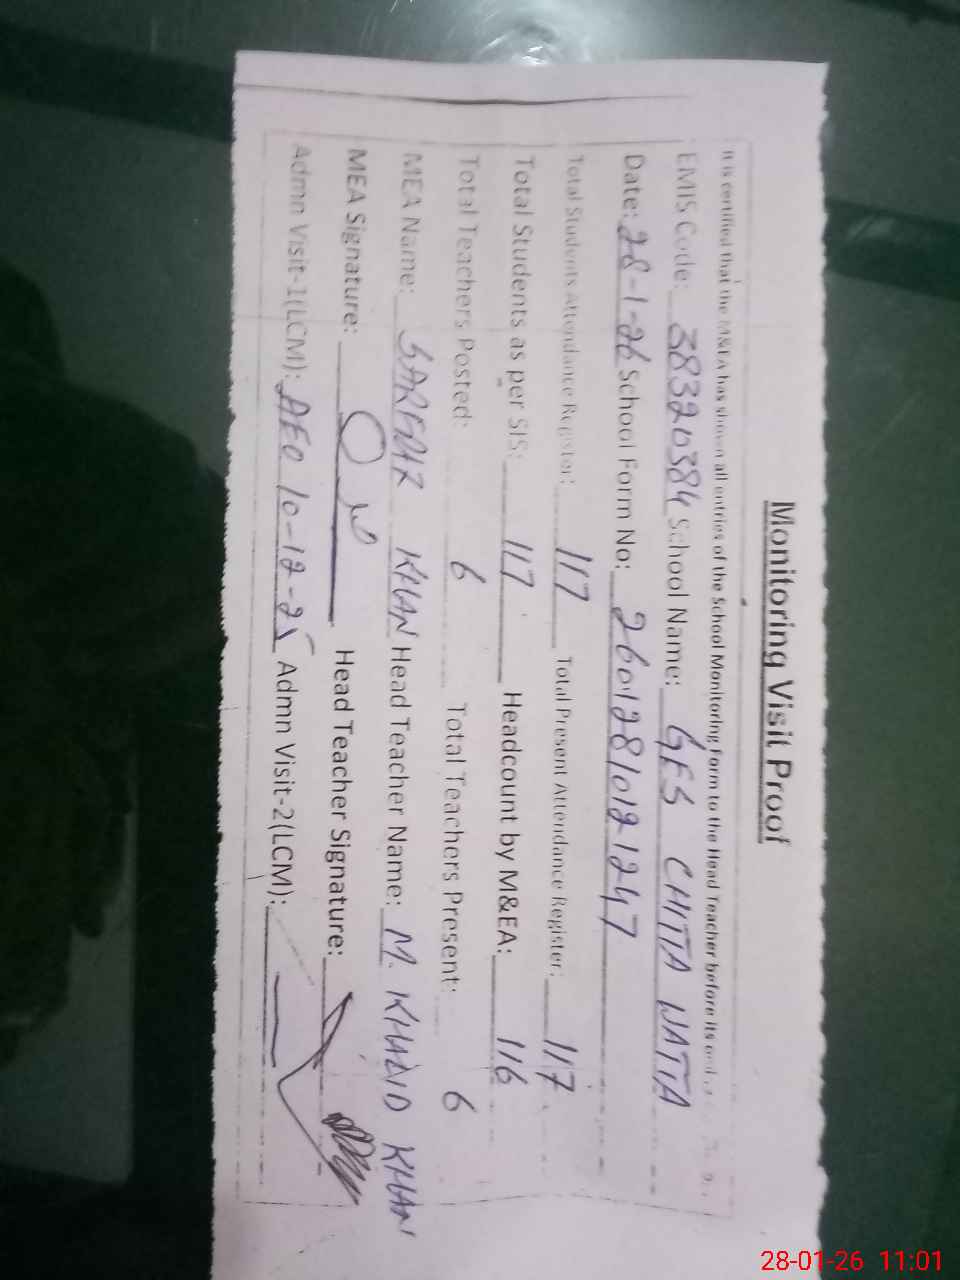 Monitoring Visit Proof
It is certified that the M&EA has shown all entries of the School Monitoring Form to the Head Teacher before its
EMIS Code: 38320384 School Name: GES CHITTA WATTA
Date: 28-1-26 School Form No: 26012810121247
Total Students Attendance Register: 117 Total Present Attendance Register: 117
Total Students as per SIS: 117 Headcount by M&EA: 116
Total Teachers Posted: 6 Total Teachers Present: 6
MEA Name: SARFRAZ KHAN Head Teacher Name: M. KHALID KHAN
MEA Signature: Head Teacher Signature:
Admn Visit-1(LCM): AEO 10-12-25 Admn Visit-2(LCM):
28-01-26 11:01